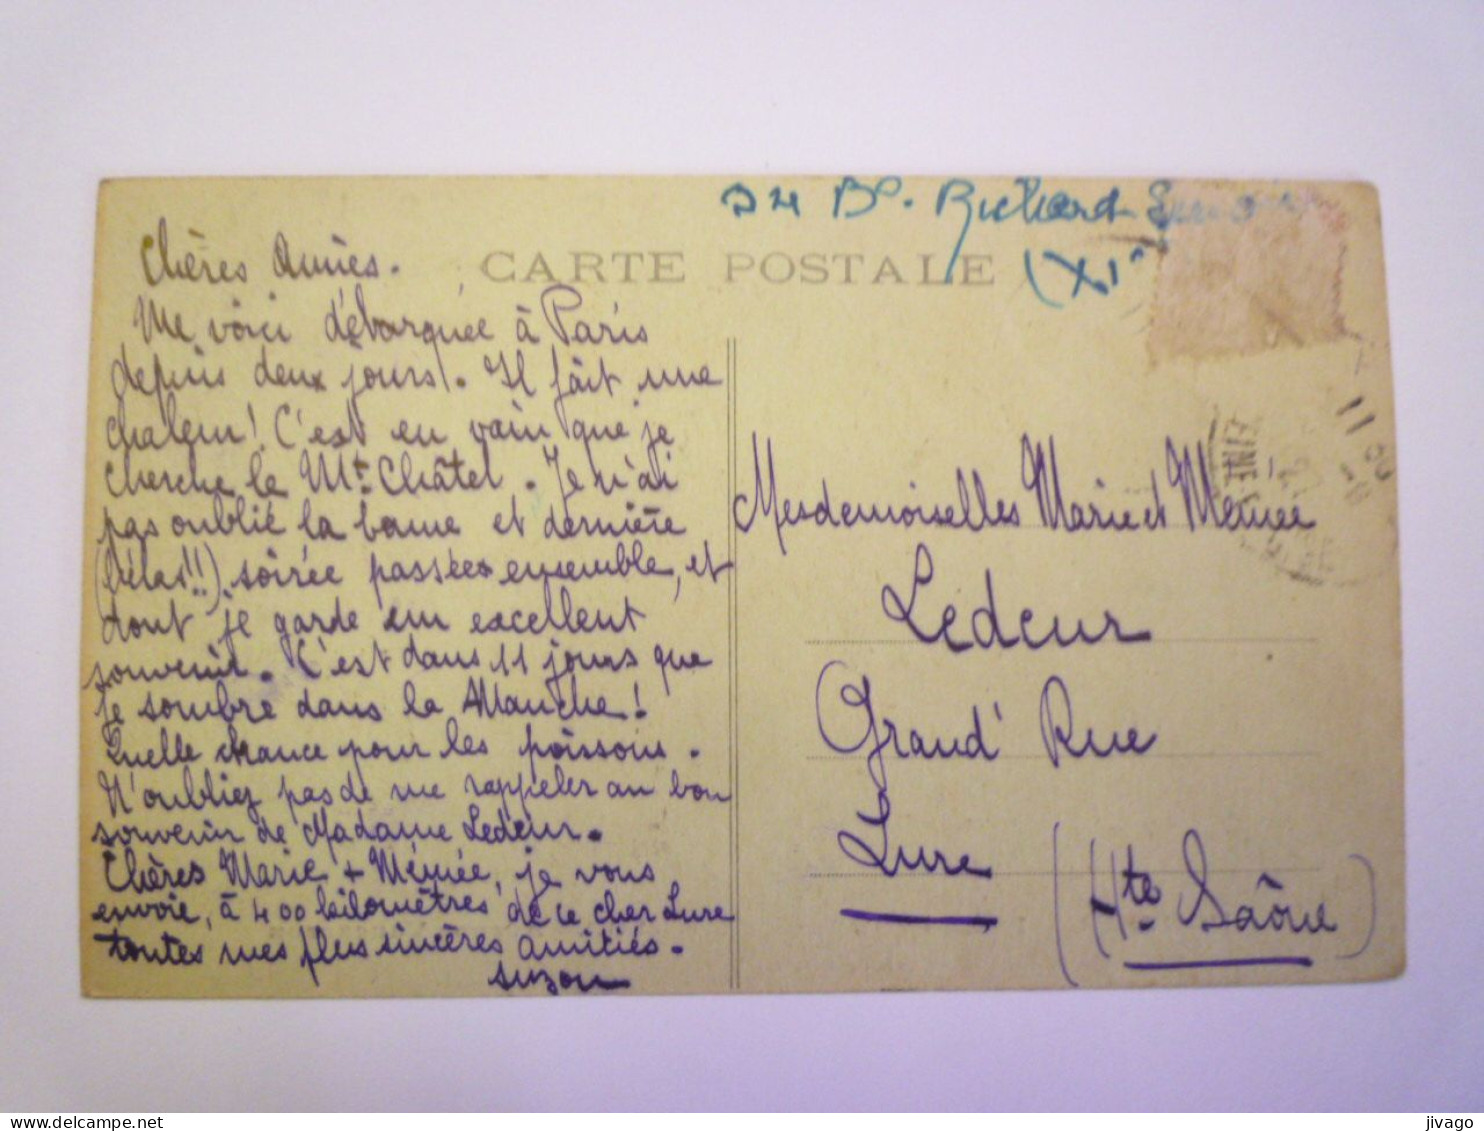 24 Bd. Richard
(XIe
CARTE POSTALE
Chères Amies.
Me voici débarquée à Paris
depuis deux jours. Il fait une
chaleur! C'est en vain que je
cherche le Mt. Châtel. Je n'ai
pas oublié la bonne et dernière
(hélas!!) soirée passées ensemble, et
dont je garde un excellent
souvenir. C'est dans 11 jours que
je sombre dans la Manche!
Quelle chance pour les poissons.
N'oubliez pas de me rappeler au bon
souvenir de Madame Ledeur.
Chères Marie + Mémée, je vous
envoie, à 400 kilomètres de ce cher Lure
toutes mes plus sincères amitiés.
Suzon
Mesdemoiselles Marie et Mémée
Ledeur
Grand' Rue
Lure
(Hte Saône)
11
jivago